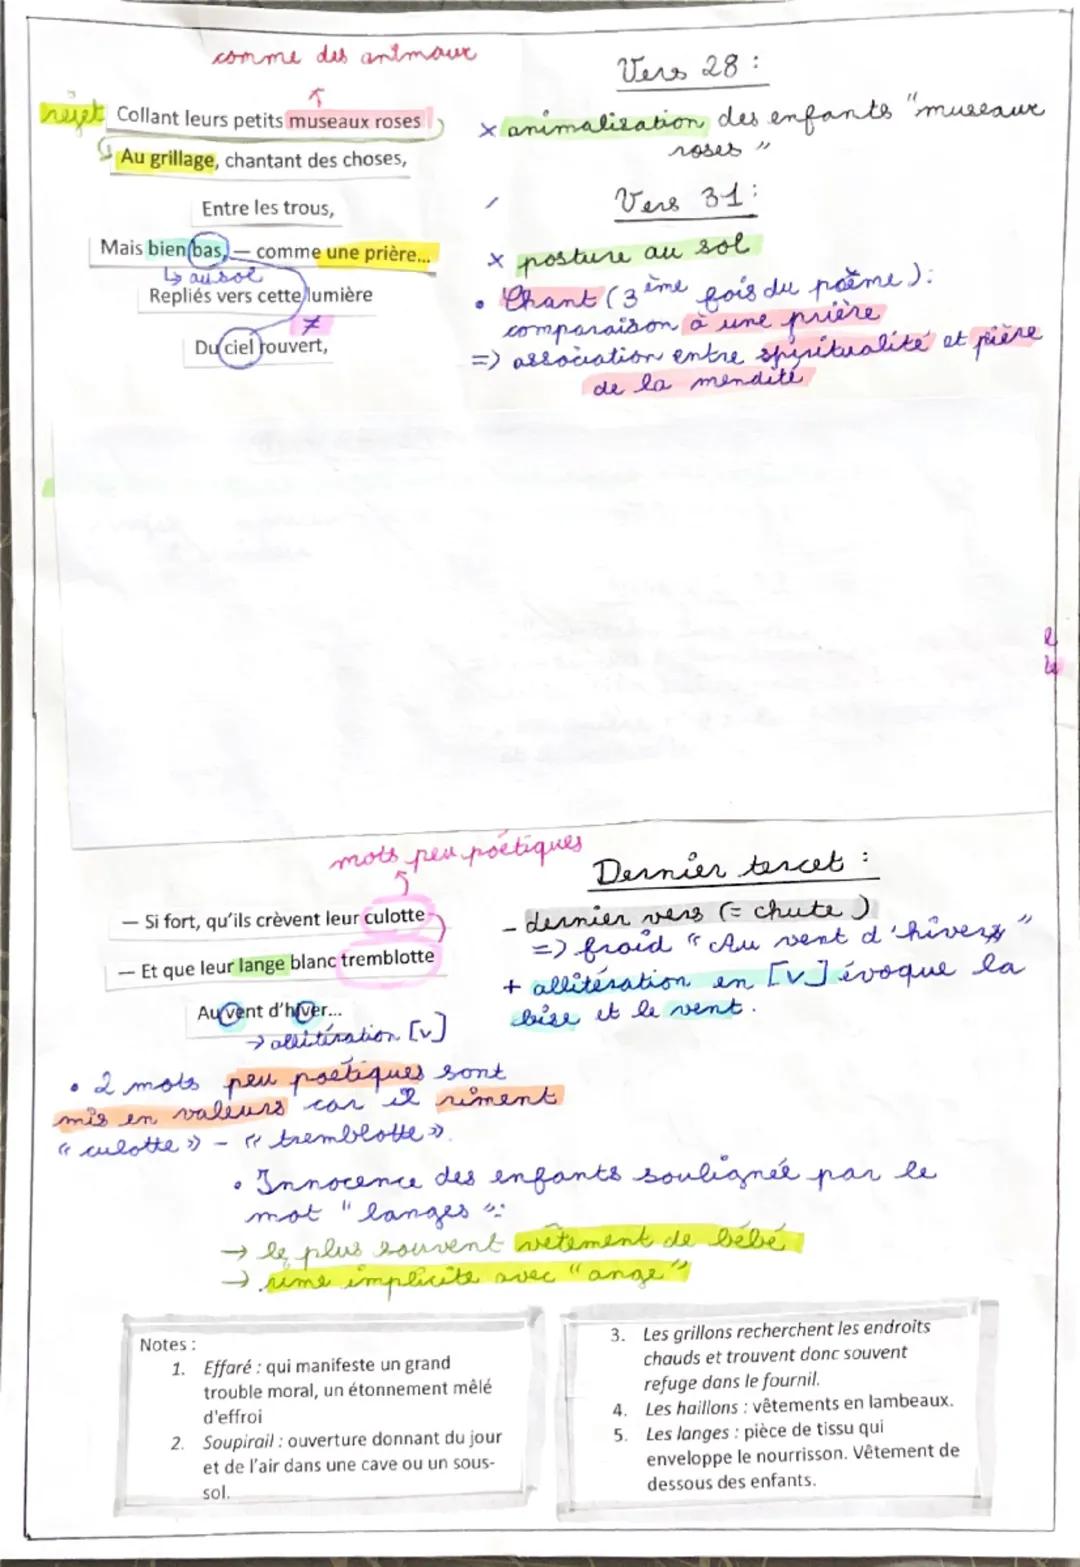 comme des animaux
rejet Collant leurs petits museaux roses
Au grillage, chantant des choses,
Entre les trous,
Mais bien bas, — comme une prière...
↳ au sol
Repliés vers cette lumière
≠
Du ciel rouvert,
Vers 28 :
x animalisation des enfants "museaux
roses"
Vers 31 :
x posture au sol
• Chant (3ème fois du poème) :
comparaison à une prière
=> association entre spiritualité et pière
de la mendité
mots peu poétiques
— Si fort, qu'ils crèvent leur culotte
— Et que leur lange blanc tremblotte
Au vent d'hiver...
→ allitération [v]
Dernier tercet :
- dernier vers (= chute)
=> froid "Au vent d'hivers"
+ allitération en [v] évoque la
bise et le vent.
• 2 mots peu poétiques sont
mis en valeurs car il riment
« culotte » - « tremblotte ».
• Innocence des enfants soulignée par le
mot "langes":
→ le plus souvent vêtement de bébé
→ rime implicite avec "ange"
Notes :
1. Effaré : qui manifeste un grand
trouble moral, un étonnement mêlé
d'effroi
2. Soupirail : ouverture donnant du jour
et de l'air dans une cave ou un sous-
sol.
3. Les grillons recherchent les endroits
chauds et trouvent donc souvent
refuge dans le fournil.
4. Les haillons : vêtements en lambeaux.
5. Les langes : pièce de tissu qui
enveloppe le nourrisson. Vêtement de
dessous des enfants.